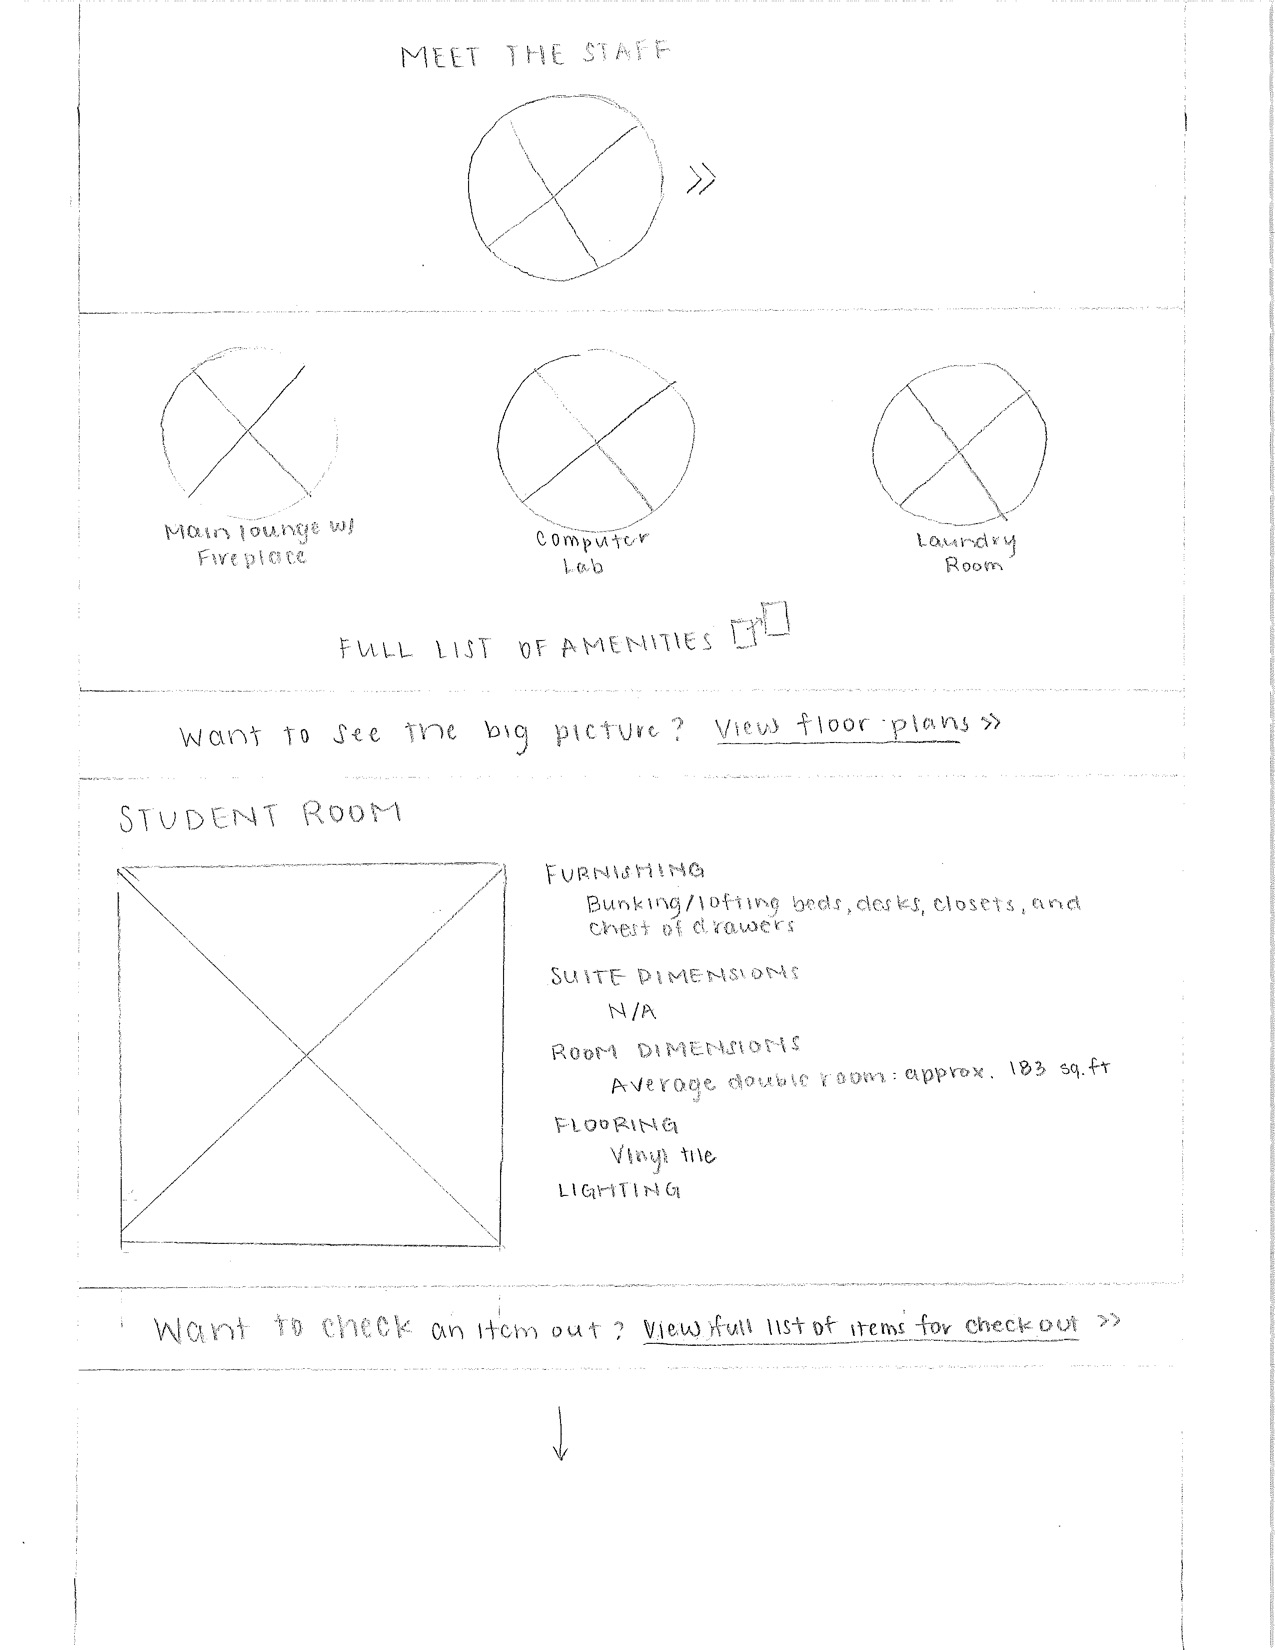 MEET THE STAFF
>>
Main lounge w/
Fireplace
Computer
Lab
Laundry
Room
FULL LIST OF AMENITIES
Want to see the big picture? View floor plans >>
STUDENT ROOM
FURNISHING
Bunking/lofting beds, desks, closets, and
chest of drawers
SUITE DIMENSIONS
N/A
ROOM DIMENSIONS
Average double room: approx. 183 sq.ft
FLOORING
Vinyl tile
LIGHTING
Want to check an item out? View full list of items for check out >>